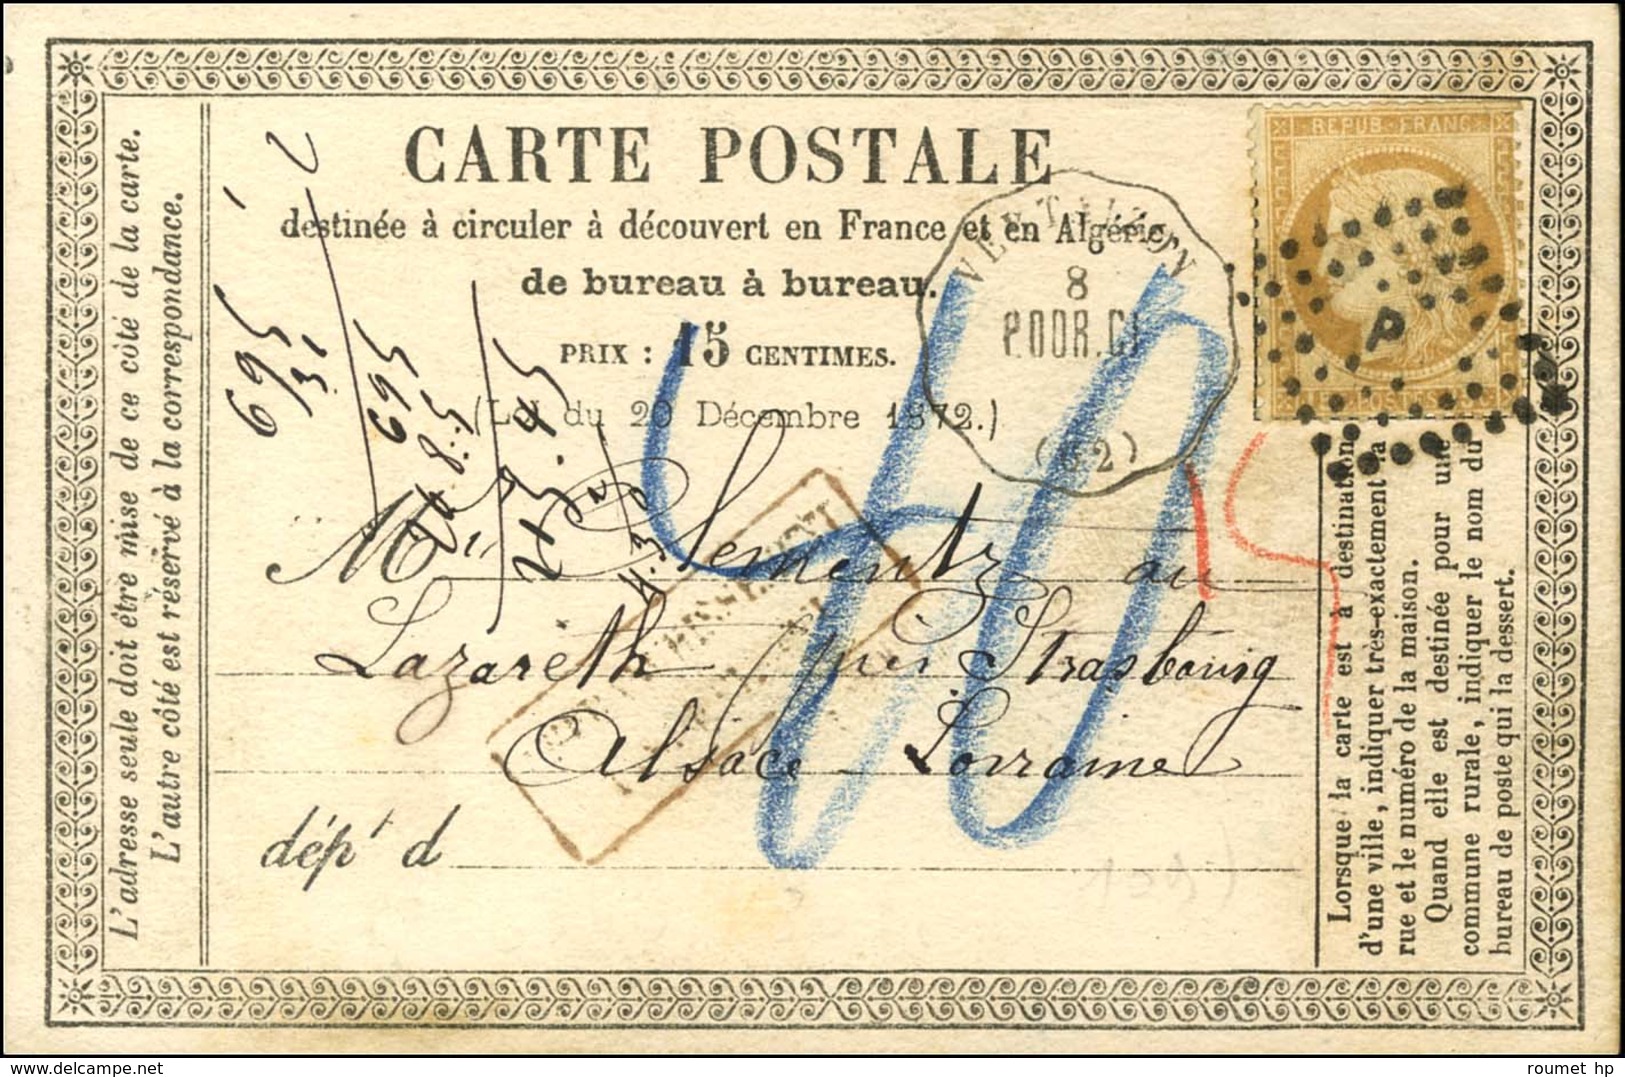 CARTE POSTALE
destinée à circuler à découvert en France et en Algérie,
de bureau à bureau.
PRIX : 15 CENTIMES.
(Loi du 20 Décembre 1872.)
L'adresse seule doit être mise de ce côté de la carte.
L'autre côté est réservé à la correspondance.
695
31
695
REPUB. FRANC.
P
8
POOR.CI
40
15
Sementz au
Lazareth près Strasbourg
Alsace Lorraine
dépt d
Lorsque la carte est à destination
d'une ville, indiquer très-exactement la
rue et le numéro de la maison.
Quand elle est destinée pour une
commune rurale, indiquer le nom du
bureau de poste qui la dessert.
roumet hp